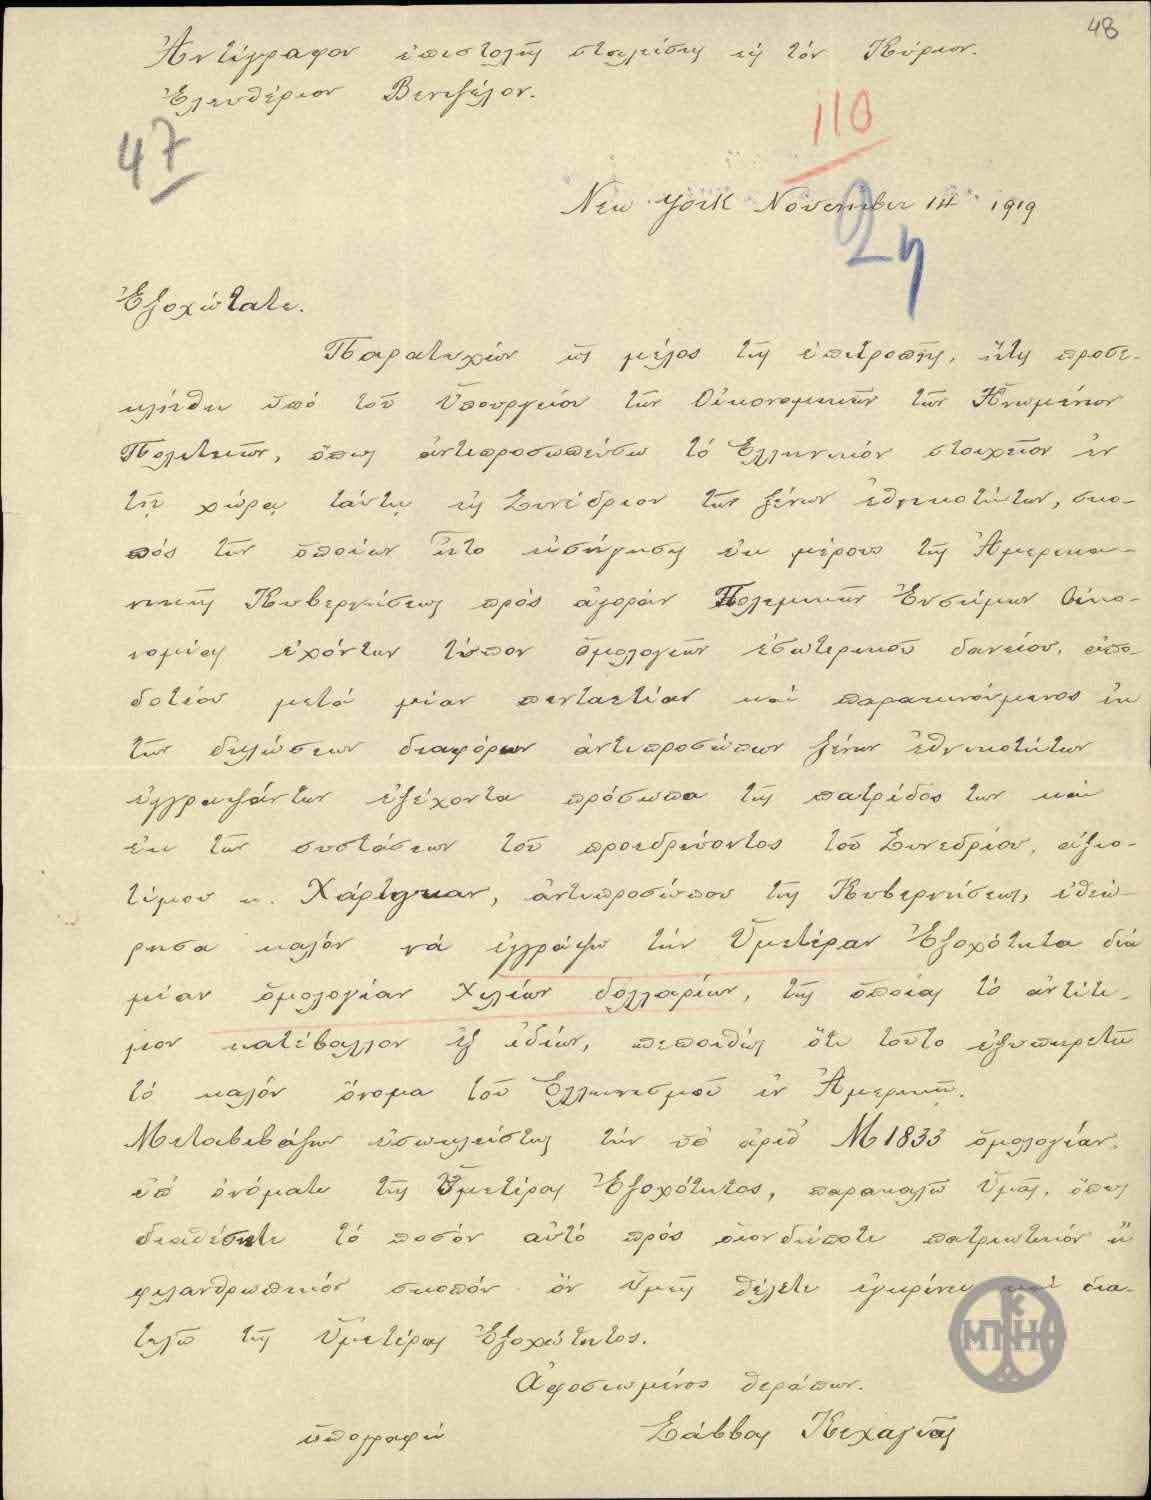 48
Ἀντίγραφον ἐπιστολῆς σταλείσης εἰς τὸν Κύριον.
Ἐλευθέριον Βενιζέλον.
110
47
New York November 14 1919
24
Ἐξοχώτατε.
Παρατυχὼν ὡς μέλος τῆς ἐπιτροπῆς, ἥτις προσε-
κλήθη ὑπὸ τοῦ Ὑπουργείου τῶν Οἰκονομικῶν τῶν Ἡνωμένων
Πολιτειῶν, ὅπως ἀντιπροσωπεύσω τὸ Ἑλληνικὸν στοιχεῖον ἐν
τῇ χώρᾳ ταύτῃ εἰς Συνέδριον τῶν ξένων ἐθνικοτήτων, σκο-
πὸς τῶν ὁποίων ἦτο εἰσήγησις ἐκ μέρους τῆς Ἀμερικα-
νικῆς Κυβερνήσεως πρὸς ἀγορὰν Πολεμικῶν Ἐνσήμων Οἰκο-
νομίας ἐχόντων τύπον ὁμολογιῶν ἐσωτερικοῦ δανείου, ἀπο-
δοτέου μετὰ μίαν πενταετίαν καὶ παρακινούμενος ἐκ
τῶν δηλώσεων διαφόρων ἀντιπροσώπων ξένων ἐθνικοτήτων
ἐγγραψάντων ἐξέχοντα πρόσωπα τῆς πατρίδος των καὶ
ἐκ τῶν συστάσεων τοῦ προεδρεύοντος τοῦ Συνεδρίου, ἀξιο-
τίμου κ. Χάρτιγκαν, ἀντιπροσώπου τῆς Κυβερνήσεως, ἐθεώ-
ρησα καλὸν νὰ ἐγγράψω τὴν Ὑμετέραν Ἐξοχότητα διὰ
μίαν ὁμολογίαν χιλίων δολλαρίων, τῆς ὁποίας τὸ ἀντίτι-
μον κατέβαλλον ἐξ ἰδίων, πεποιθὼς ὅτι τοῦτο ἐξυπηρετεῖ
τὸ καλὸν ὄνομα τοῦ Ἑλληνισμοῦ ἐν Ἀμερικῇ.
Μεταβιβάζων ἐσωκλείστως τὴν ὑπ' ἀριθ M1833 ὁμολογίαν.
ἐπ' ὀνόματι τῆς Ὑμετέρας Ἐξοχότητος, παρακαλῶ Ὑμᾶς, ὅπως
διαθέσητε τὸ ποσὸν αὐτὸ πρὸς οἱονδήποτε πατριωτικὸν ἢ
φιλανθρωπικὸν σκοπὸν ὃν Ὑμεῖς θέλετε ἐγκρίνει καὶ δια-
τελῶ τῆς Ὑμετέρας Ἐξοχότητος.
Ἀφοσιωμένος θεράπων.
ὑπογραφὴ Σάββας Κεχαγιᾶς